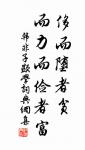 侈而墮者貧
而力而儉者富
韓非子顯學詞典網集